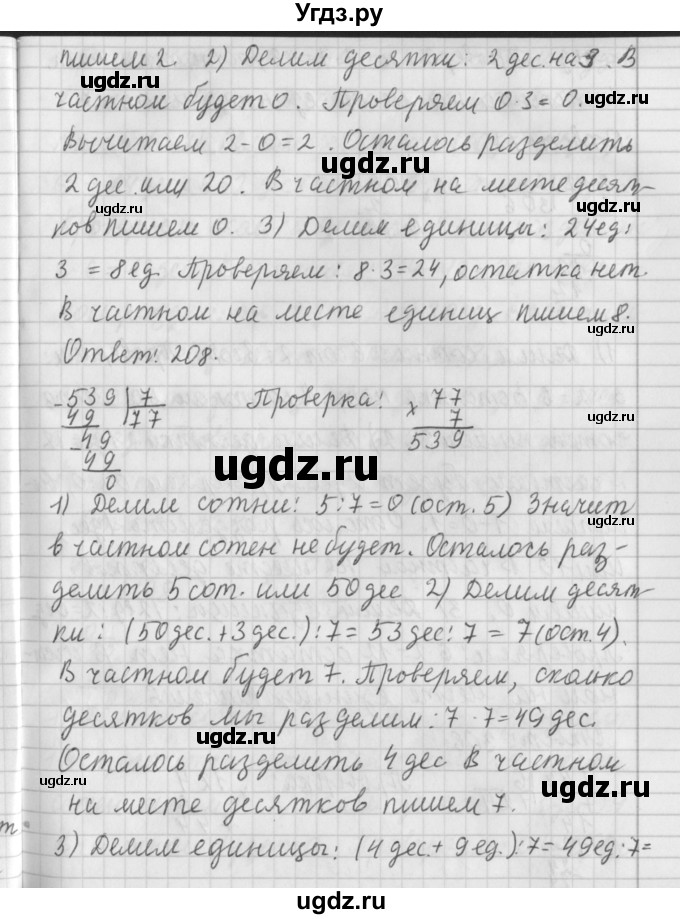 Угдз.ру
пишем 2. 2) Делим десятки: 2 дес. на 3. В
частном будет 0. Проверяем 0·3=0.
Вычитаем 2-0=2. Осталось разделить
2 дес. или 20. В частном на месте десят-
ков пишем 0. 3) Делим единицы: 24ед:
3 = 8ед. Проверяем: 8·3=24, остатка нет.
В частном на месте единиц пишем 8.
Ответ: 208.
-539 | 7
49 | 77
-49
49
0
Проверка:
× 77
7
539
1) Делим сотни: 5:7=0 (ост. 5) Значит
в частном сотен не будет. Осталось раз-
делить 5 сот. или 50 дес 2) Делим десят-
ки: (50дес.+3дес.):7=53дес:7=7(ост.4).
В частном будет 7. Проверяем, сколько
десятков мы разделим: 7·7=49дес.
Осталось разделить 4 дес В частном
на месте десятков пишем 7.
3) Делим единицы: (4дес.+9ед.):7=49ед:7=
ugdz.ru
ugdz.ru
ugdz.ru
ugdz.ru
ugdz.ru
ugdz.ru
ugdz.ru
ugdz.ru
ugdz.ru
ugdz.ru
ugdz.ru
ugdz.ru
ugdz.ru
ugdz.ru